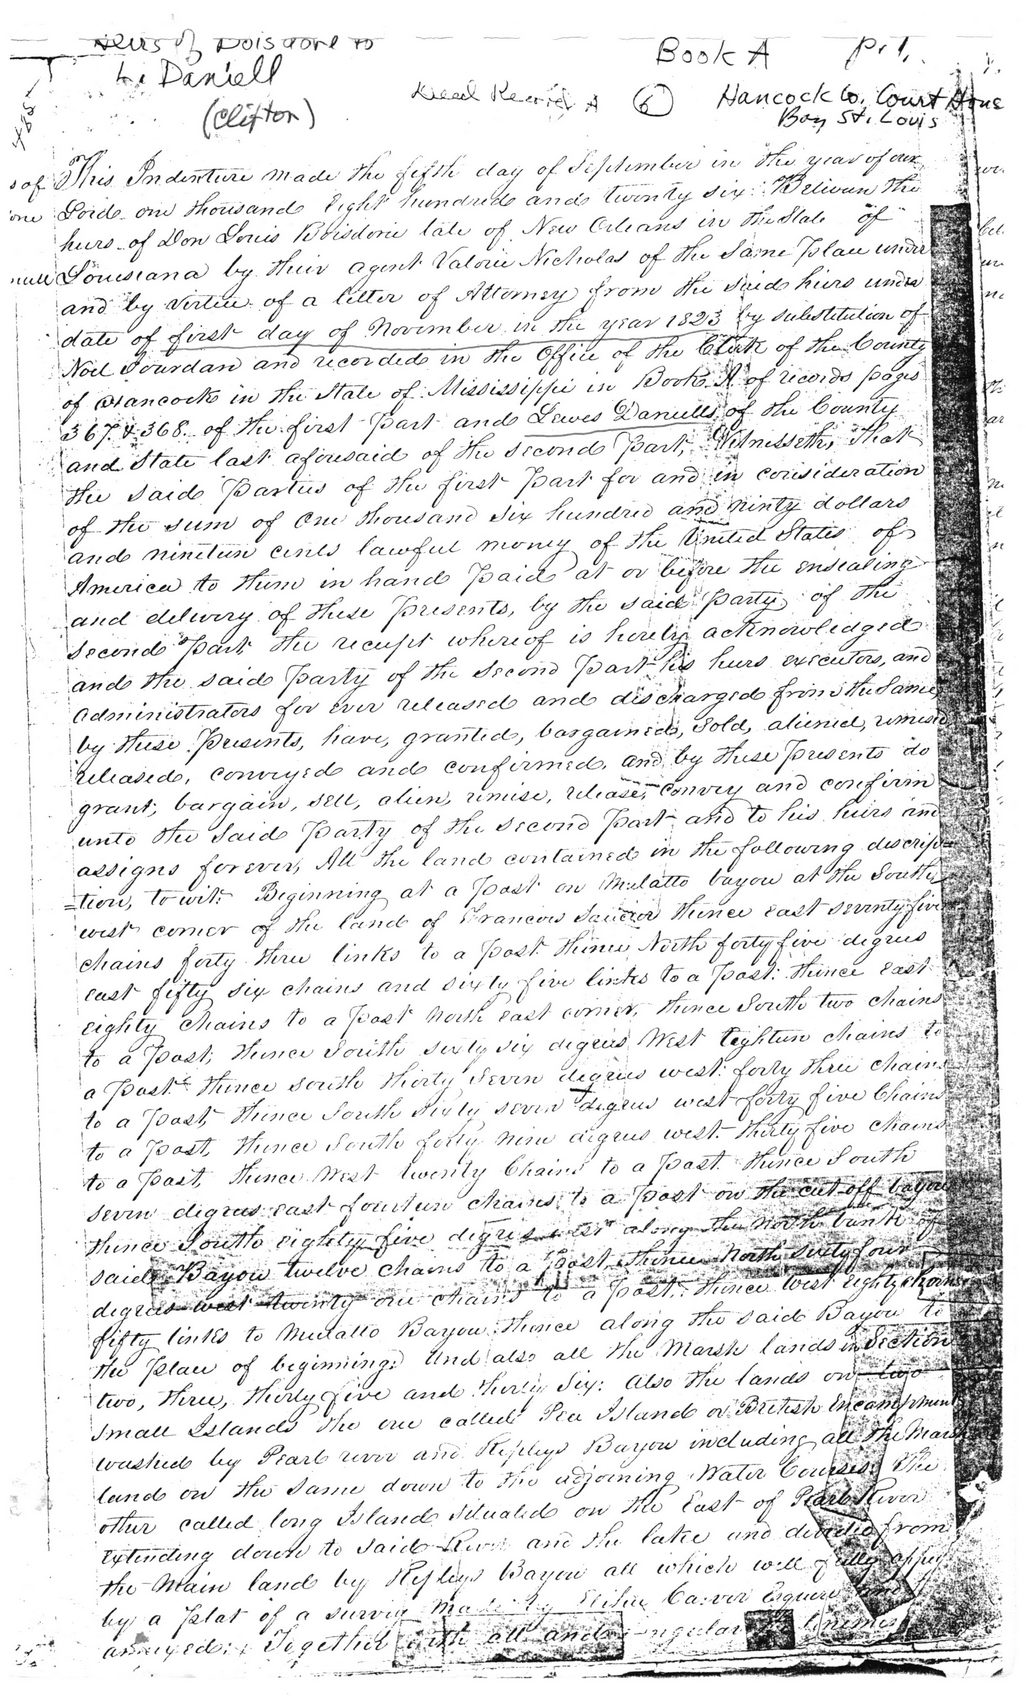 Heirs of Boisdore to
L. Daniell
(Clifton)
Deed Record A
6
Book A
p. 1.
Hancock Co. Court House
Bay St. Louis
This Indenture made the fifth day of September in the year of our
Lord one thousand Eight hundred and twenty six Between the
heirs of Don Louis Boisdorie late of New Orleans in the State of
Louisiana by their agent Valorie Nicholas of the Same Place under
and by virtue of a letter of Attorney from the said heirs under
date of first day of November in the year 1823 by substitution of
Noel Jourdan and recorded in the Office of the Clerk of the County
of Hancock in the State of Mississippi in Book A of records pages
367 & 368 of the first Part and Lewis Daniells of the County
and State last aforesaid of the second Part, Witnesseth, that
the said Parties of the first Part for and in consideration
of the sum of One thousand Six hundred and ninty dollars
and nineteen cents lawful money of the United States of
America to them in hand Paid at or before the ensealing
and delivery of these Presents, by the said Party of the
second Part the receipt whereof is hereby acknowledged
and the said Party of the Second Part his heirs executors, and
administrators for ever released and discharged from the Same
by these Presents, have, granted, bargained, Sold, aliened, remised
released, conveyed and confirmed, and by these Presents do
grant, bargain, sell, alien, remise, release, convey and confirm
unto the Said Party of the second Part and to his heirs and
assigns forever, All the land contained in the following descrip
=tion, to wit: Beginning at a Post on Mulatto bayou at the South
west corner of the land of Francois Saucier thence east seventy five
chains forty three links to a Post thence North forty five degrees
east fifty six chains and sixty five links to a Post: thence East
eighty chains to a Post North east corner, thence South two chains
to a Post; thence South sixty six degrees West Eighteen chains to
a Post thence south thirty seven degrees west forty three chains
to a Post, thence South sixty seven degrees west forty five Chains
to a Post, thence South forty nine degrees west thirty five chains
to a Post, thence West twenty Chains to a Post thence South
seven degrees east fourteen chains to a Post on the cut off bayou
thence South eighty five degrees west along the north bank of
said Bayou twelve chains to a Post, thence North sixty four
degrees west twenty one chains to a Post: thence west eighty chains
fifty links to Mulatto Bayou thence along the said Bayou to
the Place of beginning: And also all the Marsh lands in Section
two, three, thirty five and thirty six: Also the lands on two
small Islands the one called Pea Island or British Encampment
washed by Pearl river and Kepleys Bayou including all the Marsh
land on the same down to the adjoining Water Courses: the
other called long Island situated on the East of Pearl River
extending down to said River and the lake and divided from
the main land by Kepleys Bayou all which will fully appear
by a Plat of a survey made by Elihu Carver Esquire
annexed: Together with all and singular